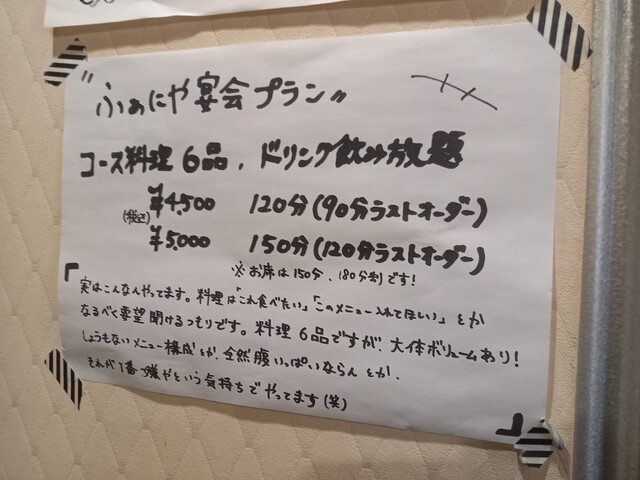 "ふぁにや宴会プラン"
コース料理6品、ドリンク飲み放題
¥4,500 120分(90分ラストオーダー)
(税込)
¥5,000 150分(120分ラストオーダー)
※お席は150分、180分制です!
「実はこんなんやってます。料理は「これ食べたい」「このメニュー入れてほしい」とか
なるべく要望聞けるつもりです。料理6品ですが、大体ボリュームあり!
しょうもないメニュー構成とか、全然腹いっぱいならんとか、
それが1番嫌やという気持ちでやってます(笑)」